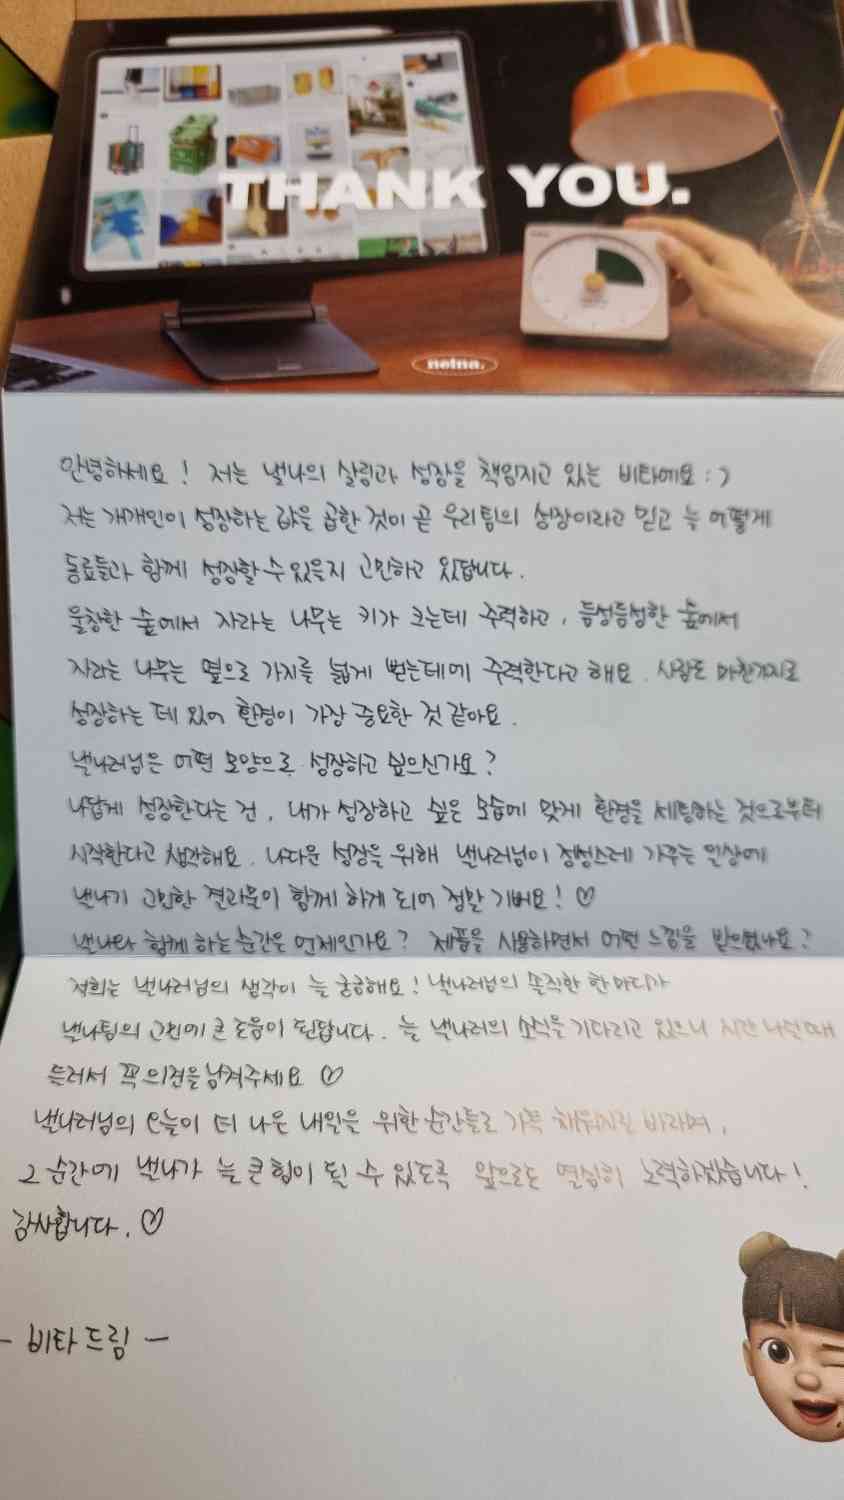 THANK YOU.
neina.
안녕하세요! 저는 낼나의 살림과 성장을 책임지고 있는 비타예요 :)
저는 개개인이 성장하는 값을 곱한 것이 곧 우리팀의 성장이라고 믿고 늘 어떻게
동료들과 함께 성장할 수 있을지 고민하고 있답니다.
울창한 숲에서 자라는 나무는 키가 크는데 주력하고, 듬성듬성한 숲에서
자라는 나무는 옆으로 가지를 넓게 뻗는데에 주력한다고 해요. 사람도 마찬가지로
성장하는 데 있어 환경이 가장 중요한 것 같아요.
낼나러님은 어떤 모양으로 성장하고 싶으신가요?
나답게 성장한다는 건, 내가 성장하고 싶은 모습에 맞게 환경을 세팅하는 것으로부터
시작한다고 생각해요. 나다운 성장을 위해 낼나러님이 정성스레 가꾸는 일상에
낼나가 고민한 결과물이 함께 하게 되어 정말 기뻐요! ♡
낼나와 함께 하는 순간은 언제인가요? 제품을 사용하면서 어떤 느낌을 받으셨나요?
저희는 낼나러님의 생각이 늘 궁금해요! 낼나러님의 솔직한 한마디가
낼나팀의 고민에 큰 도움이 된답니다. 늘 낼나러의 소식을 기다리고 있으니 시간 나실때
들러서 꼭 의견을 남겨주세요 ♡
낼나러님의 오늘이 더 나은 내일을 위한 순간들로 가득 채워지길 바라며,
그 순간에 낼나가 늘 큰 힘이 될 수 있도록 앞으로도 열심히 노력하겠습니다!
감사합니다. ♡
- 비타 드림 -